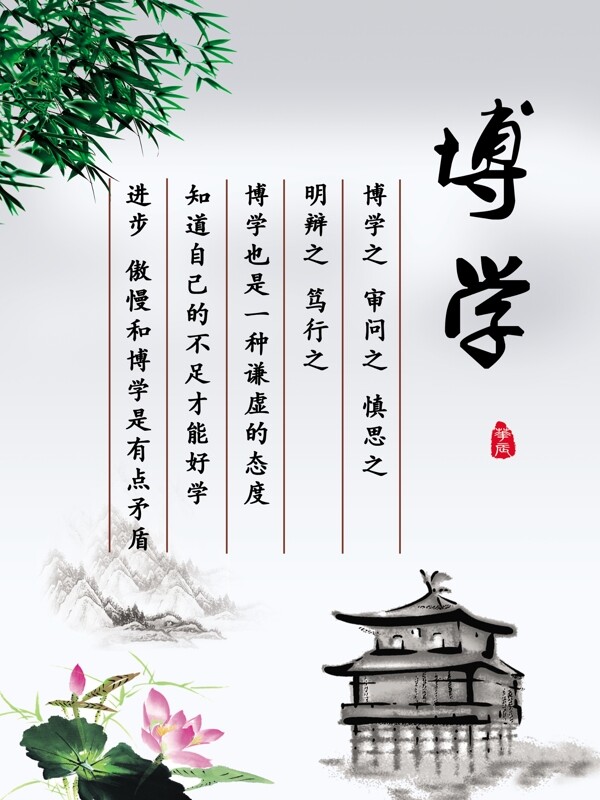 博学
博学之 审问之 慎思之
明辩之 笃行之
博学也是一种谦虚的态度
知道自己的不足才能好学
进步 傲慢和博学是有点矛盾